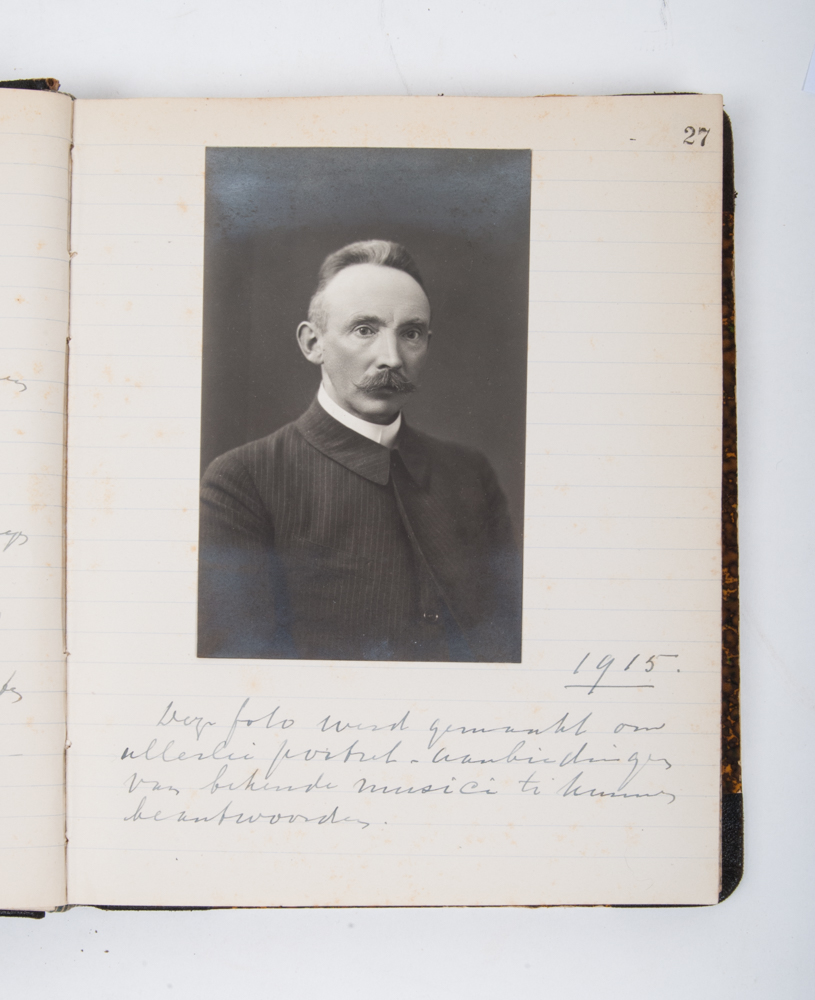 27
1915.
Deze foto werd gemaakt om
allerlei portret-aanbiedingen
van bekende musici te kunnen
beantwoorden.